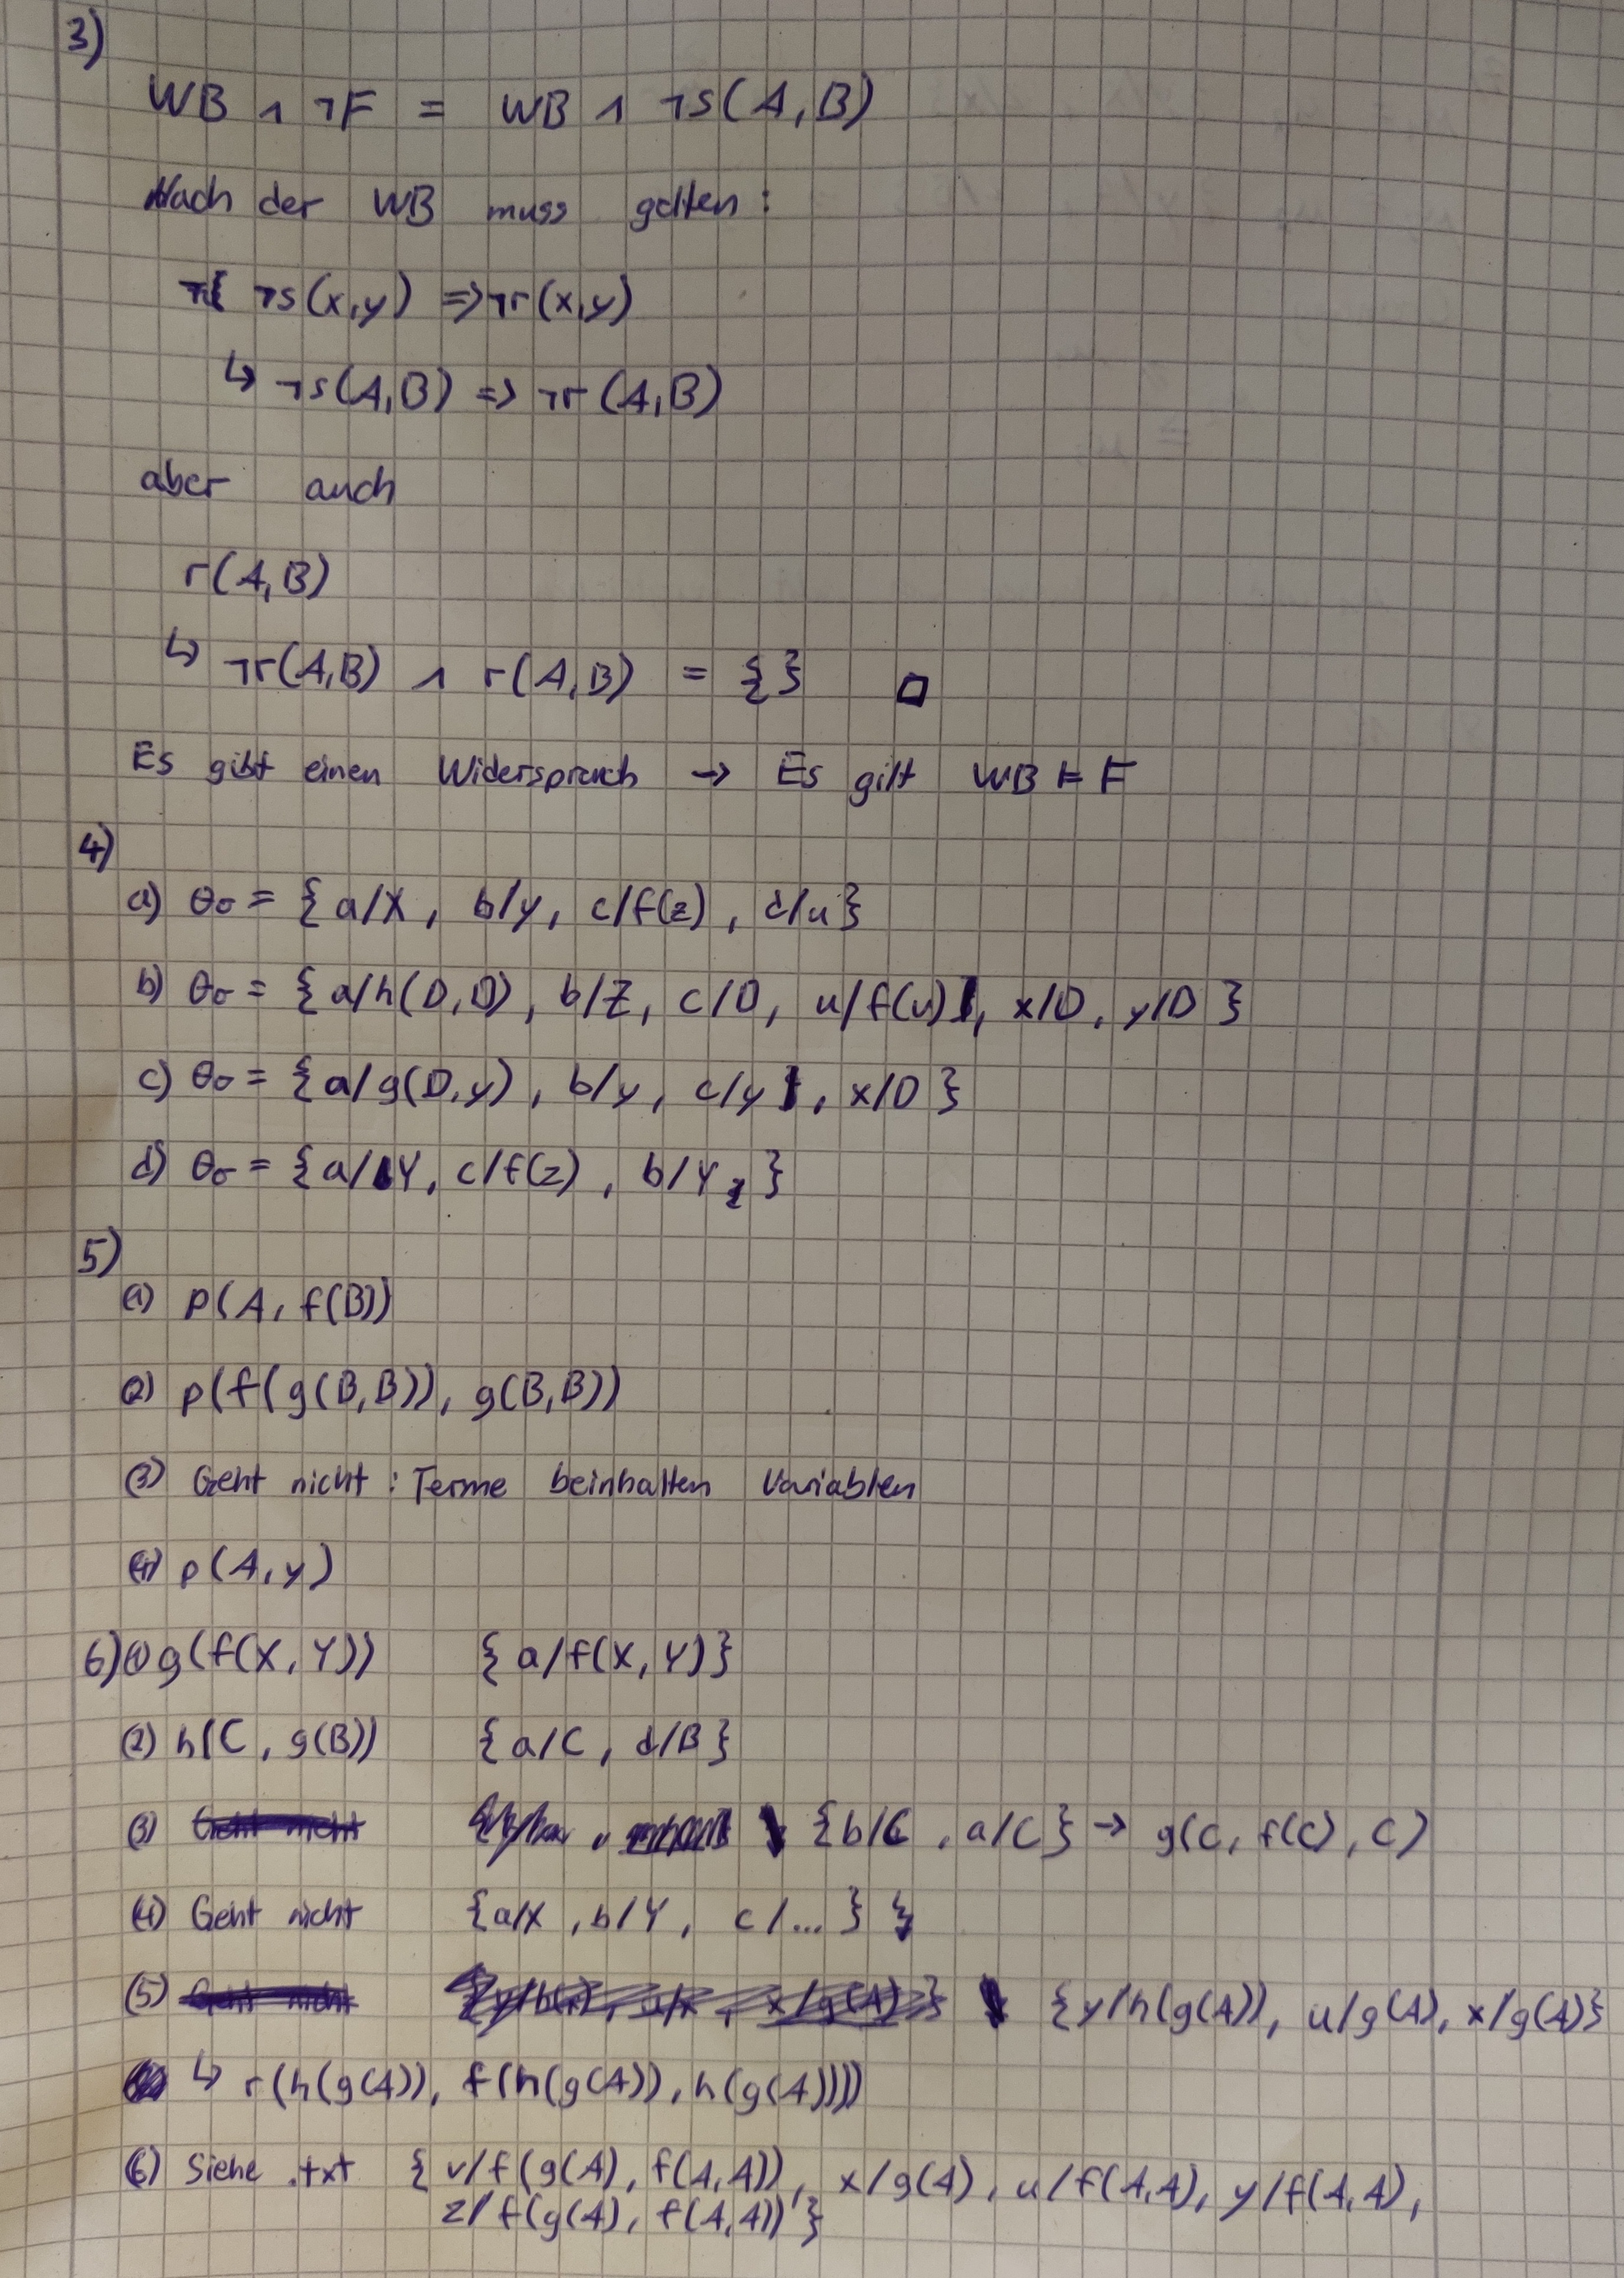 3)
WB ∧ ¬F = WB ∧ ¬s(A,B)
Nach der WB muss gelten:
¬s(x,y) => ¬r(x,y)
↳ ¬s(A,B) => ¬r(A,B)
aber auch
r(A,B)
↳ ¬r(A,B) ∧ r(A,B) = {} □
Es gibt einen Widerspruch → Es gilt WB ⊨ F
4)
a) θσ = {a/X, b/y, c/f(z), d/u}
b) θσ = {a/h(D,D), b/Z, c/D, u/f(v), x/D, y/D}
c) θσ = {a/g(D,y), b/y, c/y, x/D}
d) θσ = {a/Y, c/f(z), b/Y}
5)
(1) p(A, f(B))
(2) p(f(g(B,B)), g(B,B))
(3) Geht nicht: Terme beinhalten Variablen
(4) p(A,y)
6) (1) g(f(X,Y)) {a/f(X,Y)}
(2) h(C, g(B)) {a/C, d/B}
(3) {b/C, a/C} → g(C, f(C), C)
(4) Geht nicht {a/X, b/Y, c/...} ↯
(5) {y/h(g(A)), u/g(A), x/g(A)}
↳ r(h(g(A)), f(h(g(A)), h(g(A))))
(6) Siehe .txt {v/f(g(A), f(A,A)), x/g(A), u/f(A,A), y/f(A,A),
z/f(g(A), f(A,A))}